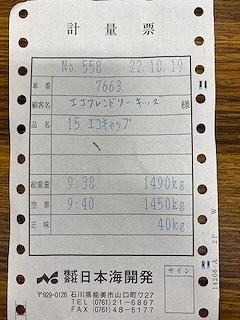 計量票
No. 558 22.10.19
車番 7663
顧客名 エコフレンドリーキッズ 様
品名 15 エコキャップ
総重量 9:38 1490kg
空車 9:40 1450kg
正味 40kg
株式会社 日本海開発
サイン
〒929-0126 石川県能美市山口町ワ27
TEL (0761)21-6867
FAX (0761)48-5177
14206-A 2P W